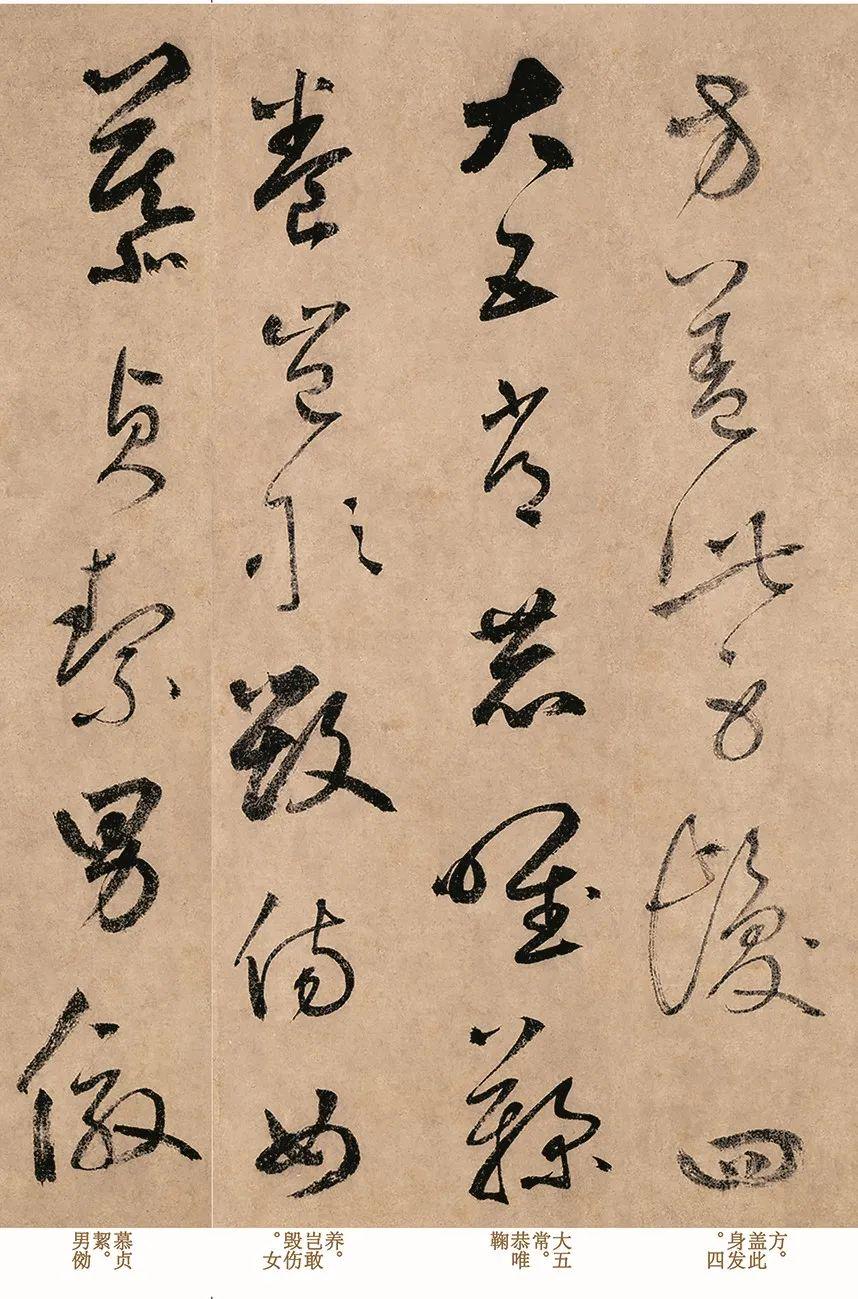 方蓋此身髮四
大五常恭唯鞠
養豈敢毀傷女
慕貞絜男傚
方。盖此身发。四
大五常。恭唯鞠
养。岂敢毁伤。女
慕贞絜。男傚